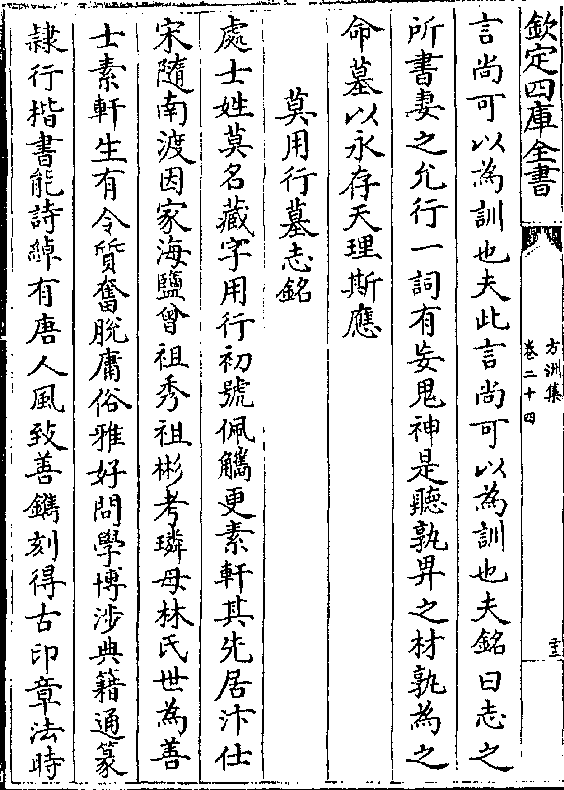 欽定四庫全書
方洲集
卷二十四
言尚可以為訓也夫此言尚可以為訓也夫銘曰志之
所書妻之允行一詞有妄鬼神是聽孰畀之材孰為之
命墓以永存天理斯應
莫用行墓志銘
處士姓莫名藏字用行初號佩觿更素軒其先居汴仕
宋隨南渡因家海鹽曾祖秀祖彬考璘母林氏世為善
士素軒生有令質奮脫庸俗雅好問學博涉典籍通篆
隷行楷書能詩綽有唐人風致善鐫刻得古印章法時